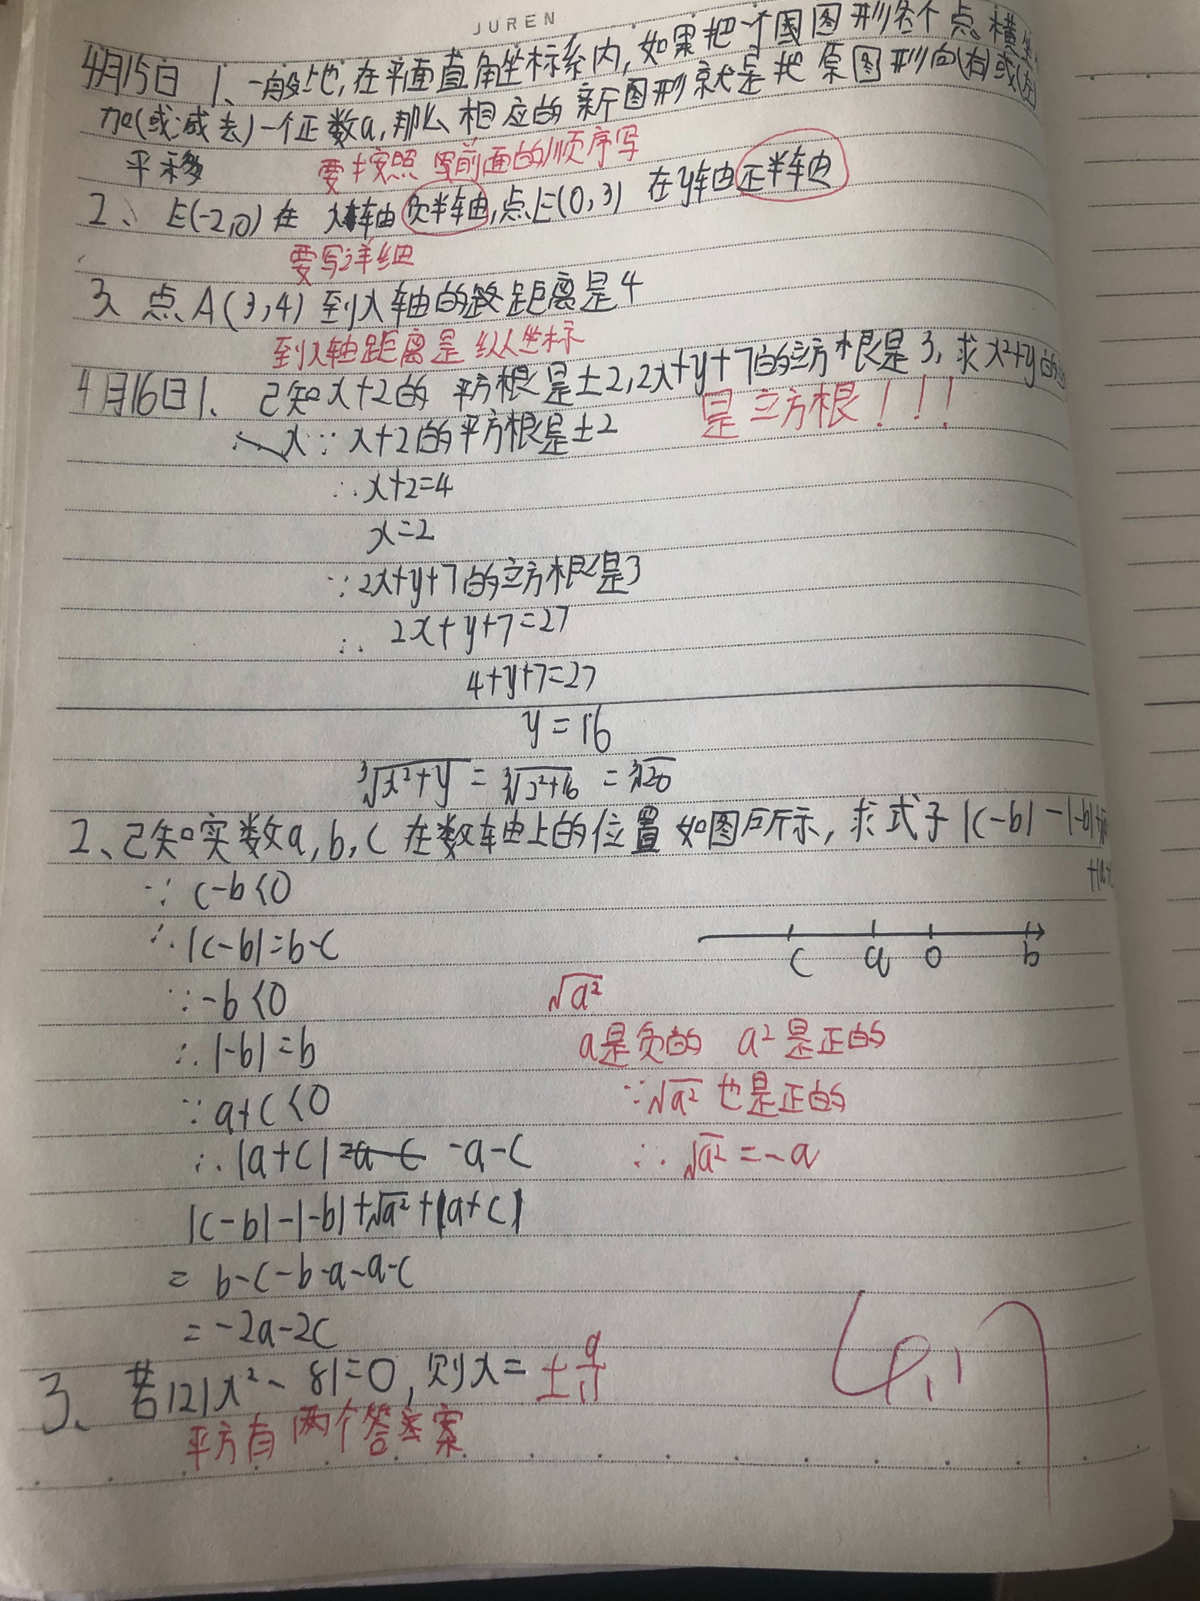 JUREN
4月15日 1、一般地,在平面直角坐标系内,如果把一个图图形各个点横坐
加(或减去)一个正数a,那么相应的新图形就是把原图形向(右)或(左)
平移
要按照 写前面的顺序写
2、 E(-2,0)在 x轴 负半轴,点E(0,3) 在y轴正半轴
要写详细
3、点A(3,4) 到x轴的路距离是4
到x轴距离是 纵坐标
4月16日1、 已知x+2的 平方根是±2,2x+y+7的立方根是3,求x²+y的
是立方根!!!
x∵ x+2的平方根是±2
∴x+2=4
x=2
∵2x+y+7的立方根是3
∴ 2x+y+7=27
4+y+7=27
y=16
³√x²+y = ³√2²+16 = ³√20
2、已知实数a,b,c在数轴上的位置如图所示,求式子|c-b|-|-b|+
+|a+
∵ c-b<0
∴|c-b|=b-c
c a 0 b
∵-b<0
∴|-b|=b
∵a+c<0
∴|a+c|=a-c -a-c
√a²
a是负的 a²是正的
∵√a²也是正的
∴√a²=-a
|c-b|-|-b|+√a²+|a+c|
= b-c-b-a-a-c
=-2a-2c
3、若121x²-81=0,则x=±9/11
平方有两个答案